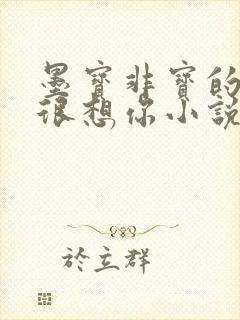 墨寶非寶的
很想你小說
於立群